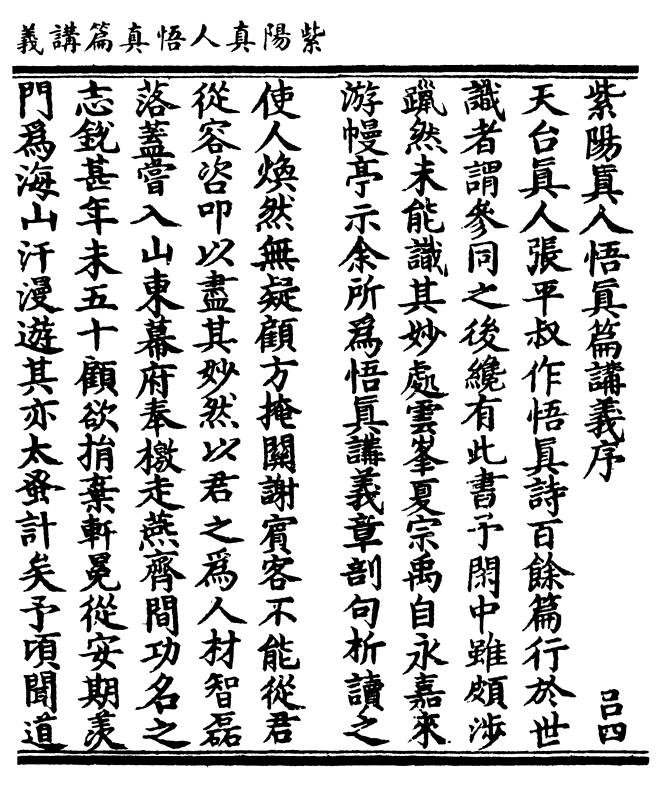 紫陽真人悟真篇講義
紫陽眞人悟眞篇講義序
吕四
天台眞人張平叔作悟眞詩百餘篇行於世
識者謂參同之後纔有此書予閑中雖頗涉
躐然未能識其妙處雲峯夏宗禹自永嘉來
游幔亭示余所爲悟眞講義章剖句析讀之
使人煥然無疑顧方掩關謝賓客不能從君
從容咨叩以盡其妙然以君之爲人材智磊
落蓋嘗入山東幕府奉檄走燕齊間功名之
志銳甚年未五十顧欲捐棄軒冕從安期羨
門爲海山汗漫遊其亦太蚤計矣予頃聞道